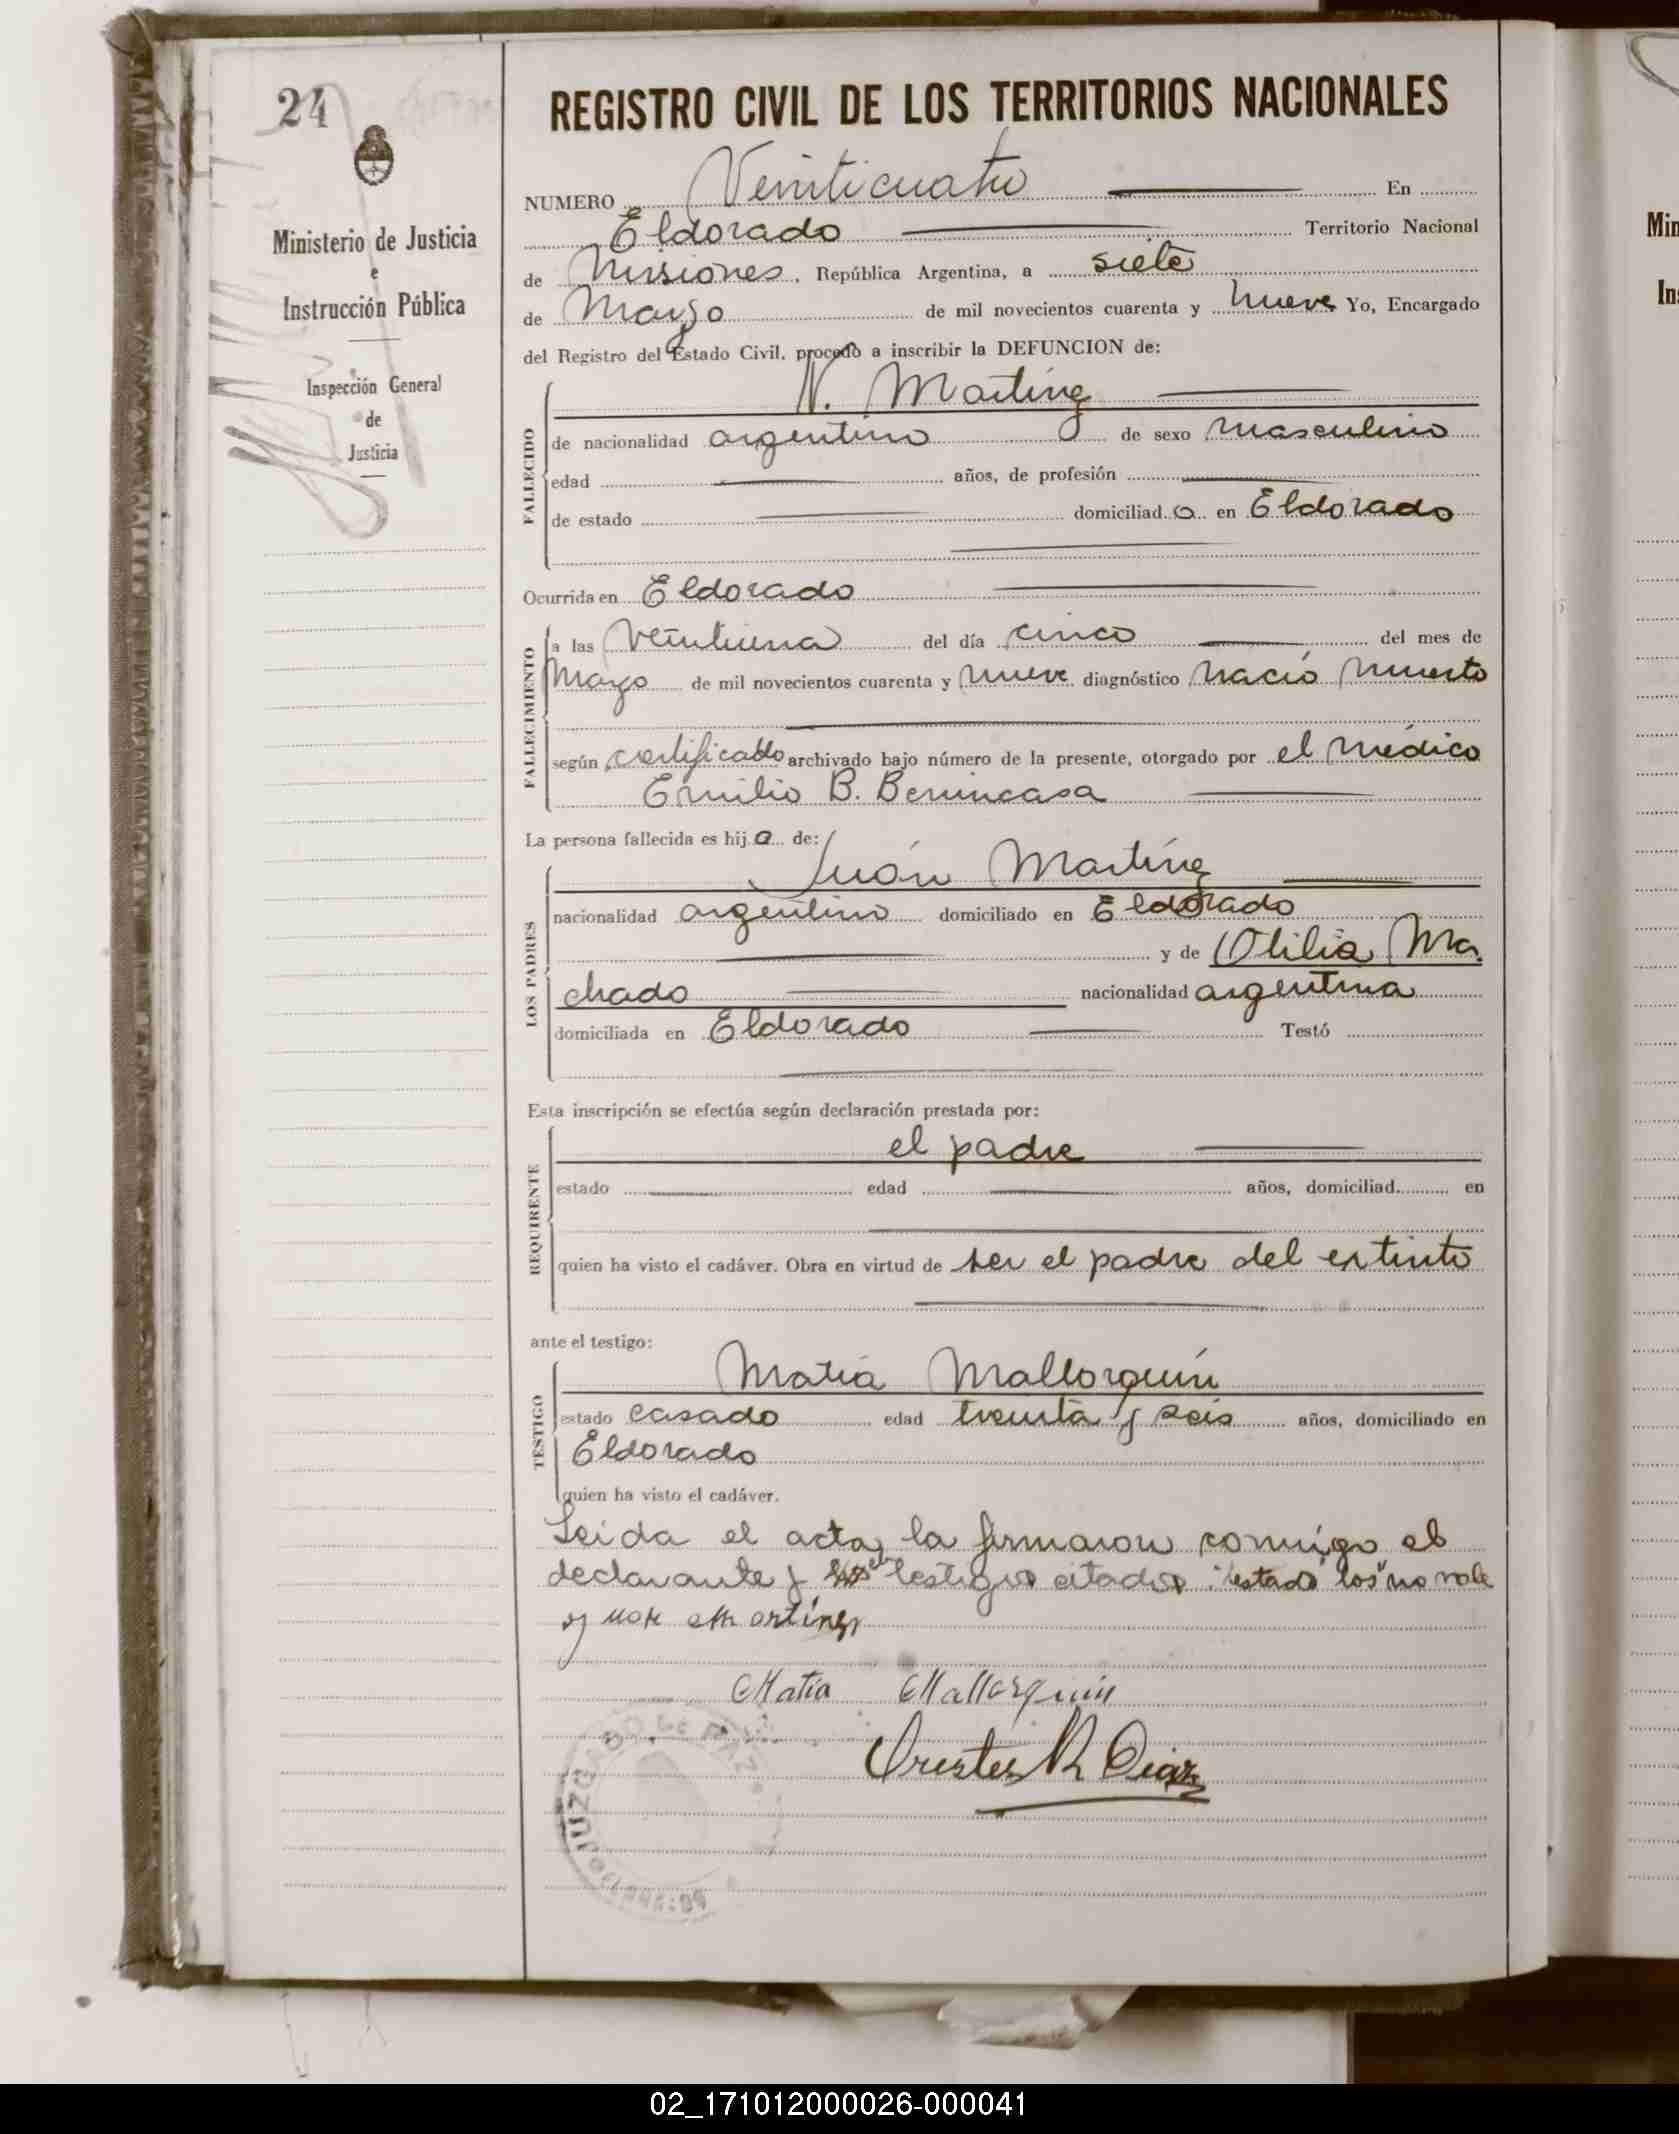 24
Ministerio de Justicia
e
Instrucción Pública
Inspección General
de
Justicia
REGISTRO CIVIL DE LOS TERRITORIOS NACIONALES
NUMERO Veinticuatro En
Eldorado Territorio Nacional
de Misiones, República Argentina, a siete
de Marzo de mil novecientos cuarenta y nueve Yo, Encargado
del Registro del Estado Civil, procedo a inscribir la DEFUNCION de:
N. Martinez
FALLECIDO
de nacionalidad argentino de sexo masculino
edad años, de profesión
de estado domiciliado en Eldorado
Ocurrida en Eldorado
FALLECIMIENTO
a las veintiuna del día cinco del mes de
Marzo de mil novecientos cuarenta y nueve diagnóstico nació muerto
según certificado archivado bajo número de la presente, otorgado por el médico
Emilio B. Benincasa
La persona fallecida es hijo de:
LOS PADRES
Juán Martínez
nacionalidad argentino domiciliado en Eldorado
y de Otilia Ma
chado nacionalidad argentina
domiciliada en Eldorado Testó
Esta inscripción se efectúa según declaración prestada por:
REQUIRENTE
el padre
estado edad años, domiciliad en
quien ha visto el cadáver. Obra en virtud de ser el padre del extinto
ante el testigo:
TESTIGO
Matia Mallorquin
estado casado edad treinta y seis años, domiciliado en
Eldorado
quien ha visto el cadáver.
Leida el acta, la firmaron conmigo el
declarante y el testigo citado: testado "los" no vale
Martínez
Matia Mallorquín
Orestes R Diaz
JUZGADO DE PAZ
02_171012000026-000041